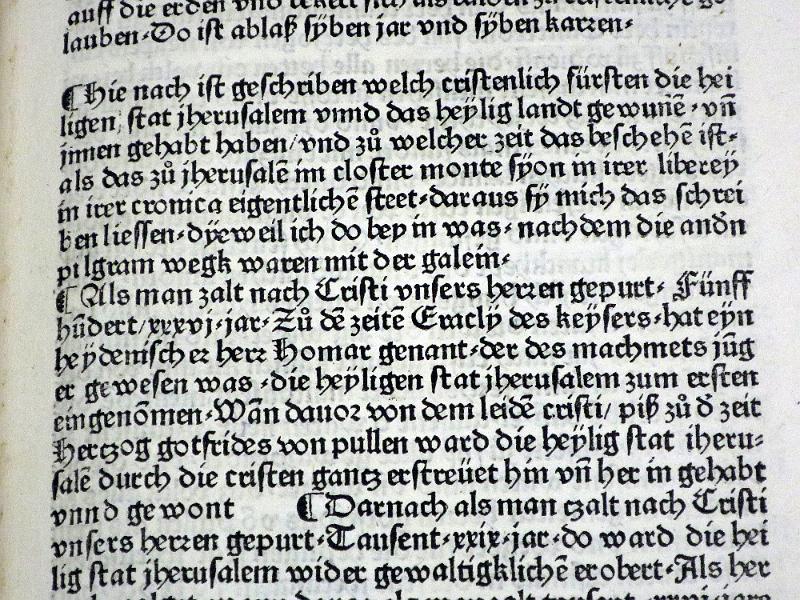 auff die erden vnd
lauben·Do ist ablaß sÿben jar vnd sÿben karren·
¶Hie nach ist geschriben welch cristenlich fürsten die hei
ligen stat jherusalem vnnd das heÿlig landt gewuñē·vñ
jnnen gehabt haben/vnd zů welcher zeit das beschehē ist·
als das zů jherusalē im closter monte sÿon in irer liberey
in irer cronica eigentlichē steet·daraus sÿ mich das schrei
ben liessen·dÿeweil ich do bey in was·nachdem die andn̄
pilgram wegk waren mit der galein·
¶Als man zalt nach Cristi vnsers herren gepurt·Fünff
hūdert/xxxvj·jar·Zů dē zeitē Eraclÿ des keÿsers·hat eÿn
heÿdenischer herr Homar genant·der des machmets jūg
er gewesen was·die heÿligen stat jherusalem zum ersten
eingenōmen·Wān dauor von dem leidē cristi/piß zů đ zeit
Hertzog gotfrides von pullen ward die heÿlig stat iheru⸗
salē durch die cristen gantz erstreüet hin vñ her in gehabt
vnnd gewont ¶Darnach als man czalt nach Cristi
vnsers herren gepurt·Tausent·xxix·jar·do ward die hei
lig stat jherusalem wider gewaltigklichē erobert·Als her